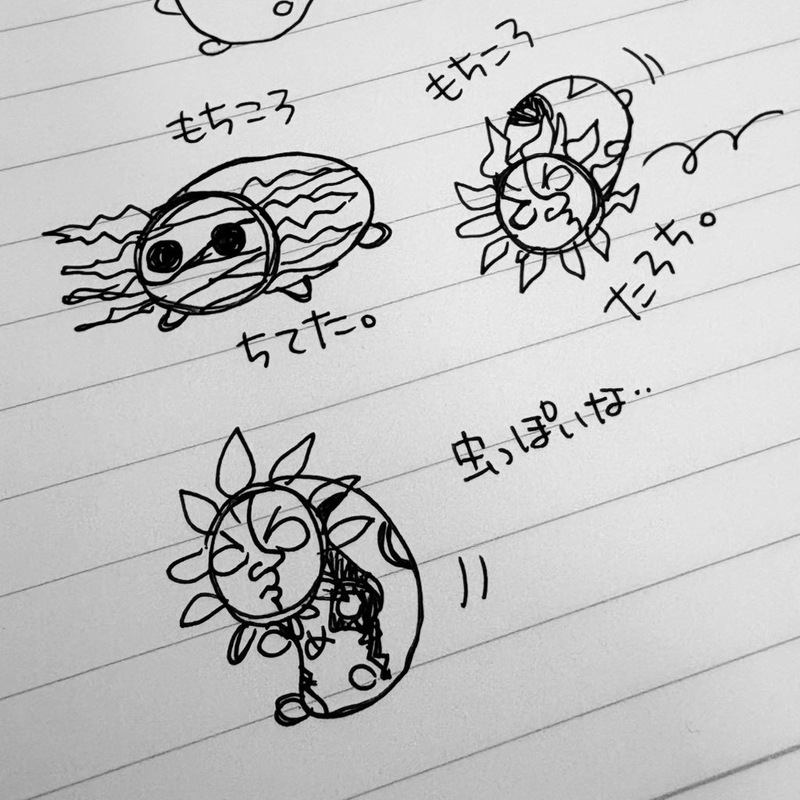 もちころ
もちころ
ちてた。
たろち。
虫っぽいな‥
め